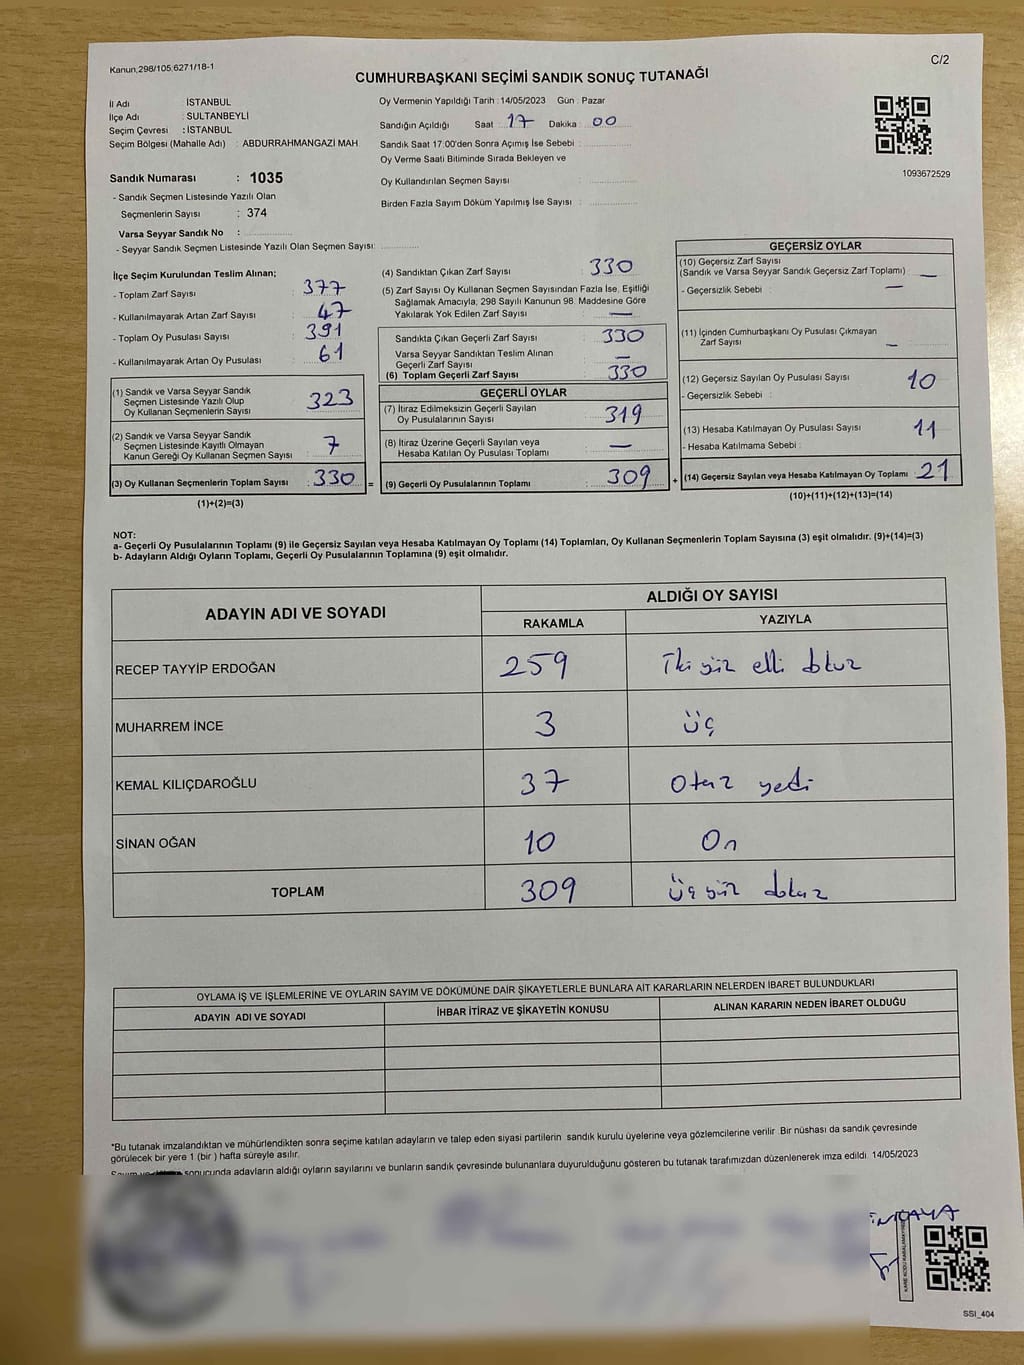 Kanun;298/105;6271/18-1
C/2
CUMHURBAŞKANI SEÇİMİ SANDIK SONUÇ TUTANAĞI
İl Adı : İSTANBUL
İlçe Adı : SULTANBEYLİ
Seçim Çevresi : İSTANBUL
Seçim Bölgesi (Mahalle Adı) : ABDURRAHMANGAZİ MAH.
Oy Vermenin Yapıldığı Tarih : 14/05/2023 Gün : Pazar
Sandığın Açıldığı Saat : 17 Dakika : 00
Sandık Saat 17:00'den Sonra Açımış İse Sebebi :
Oy Verme Saati Bitiminde Sırada Bekleyen ve
Oy Kullandırılan Seçmen Sayısı :
Birden Fazla Sayım Döküm Yapılmış İse Sayısı :
1093672529
Sandık Numarası : 1035
- Sandık Seçmen Listesinde Yazılı Olan
Seçmenlerin Sayısı : 374
Varsa Seyyar Sandık No :
- Seyyar Sandık Seçmen Listesinde Yazılı Olan Seçmen Sayısı:
İlçe Seçim Kurulundan Teslim Alınan;
- Toplam Zarf Sayısı : 377
- Kullanılmayarak Artan Zarf Sayısı : 47
- Toplam Oy Pusulası Sayısı : 391
- Kullanılmayarak Artan Oy Pusulası : 61
(1) Sandık ve Varsa Seyyar Sandık
Seçmen Listesinde Yazılı Olup
Oy Kullanan Seçmenlerin Sayısı : 323
(2) Sandık ve Varsa Seyyar Sandık
Seçmen Listesinde Kayıtlı Olmayan
Kanun Gereği Oy Kullanan Seçmen Sayısı : 7
(3) Oy Kullanan Seçmenlerin Toplam Sayısı : 330 =
(1)+(2)=(3)
(4) Sandıktan Çıkan Zarf Sayısı : 330
(5) Zarf Sayısı Oy Kullanan Seçmen Sayısından Fazla İse, Eşitliği
Sağlamak Amacıyla; 298 Sayılı Kanunun 98. Maddesine Göre
Yakılarak Yok Edilen Zarf Sayısı : —
Sandıkta Çıkan Geçerli Zarf Sayısı : 330
Varsa Seyyar Sandıktan Teslim Alınan
Geçerli Zarf Sayısı : —
(6) Toplam Geçerli Zarf Sayısı : 330
GEÇERLİ OYLAR
(7) İtiraz Edilmeksizin Geçerli Sayılan
Oy Pusulalarının Sayısı : 319
(8) İtiraz Üzerine Geçerli Sayılan veya
Hesaba Katılan Oy Pusulası Toplamı : —
(9) Geçerli Oy Pusulalarının Toplamı : 309 +
GEÇERSİZ OYLAR
(10) Geçersiz Zarf Sayısı
(Sandık ve Varsa Seyyar Sandık Geçersiz Zarf Toplamı) : —
- Geçersizlik Sebebi : —
(11) İçinden Cumhurbaşkanı Oy Pusulası Çıkmayan
Zarf Sayısı : —
(12) Geçersiz Sayılan Oy Pusulası Sayısı : 10
- Geçersizlik Sebebi :
(13) Hesaba Katılmayan Oy Pusulası Sayısı : 11
- Hesaba Katılmama Sebebi :
(14) Geçersiz Sayılan veya Hesaba Katılmayan Oy Toplamı : 21
(10)+(11)+(12)+(13)=(14)
NOT:
a- Geçerli Oy Pusulalarının Toplamı (9) ile Geçersiz Sayılan veya Hesaba Katılmayan Oy Toplamı (14) Toplamları, Oy Kullanan Seçmenlerin Toplam Sayısına (3) eşit olmalıdır. (9)+(14)=(3)
b- Adayların Aldığı Oyların Toplamı, Geçerli Oy Pusulalarının Toplamına (9) eşit olmalıdır.
ADAYIN ADI VE SOYADI ALDIĞI OY SAYISI
RAKAMLA YAZIYLA
RECEP TAYYİP ERDOĞAN 259 İki yüz elli dokuz
MUHARREM İNCE 3 üç
KEMAL KILIÇDAROĞLU 37 Otuz yedi
SİNAN OĞAN 10 On
TOPLAM 309 üç yüz dokuz
OYLAMA İŞ VE İŞLEMLERİNE VE OYLARIN SAYIM VE DÖKÜMÜNE DAİR ŞİKAYETLERLE BUNLARA AİT KARARLARIN NELERDEN İBARET BULUNDUKLARI
ADAYIN ADI VE SOYADI İHBAR İTİRAZ VE ŞİKAYETİN KONUSU ALINAN KARARIN NEDEN İBARET OLDUĞU
*Bu tutanak imzalandıktan ve mühürlendikten sonra seçime katılan adayların ve talep eden siyasi partilerin sandık kurulu üyelerine veya gözlemcilerine verilir. Bir nüshası da sandık çevresinde
görülecek bir yere 1 (bir ) hafta süreyle asılır.
sonucunda adayların aldığı oyların sayılarını ve bunların sandık çevresinde bulunanlara duyurulduğunu gösteren bu tutanak tarafımızdan düzenlenerek imza edildi. 14/05/2023
SSI_404